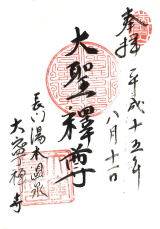 奉拝 平成十五年
八月十二日
大聖釋尊
長門湯本温泉
大寧禅寺